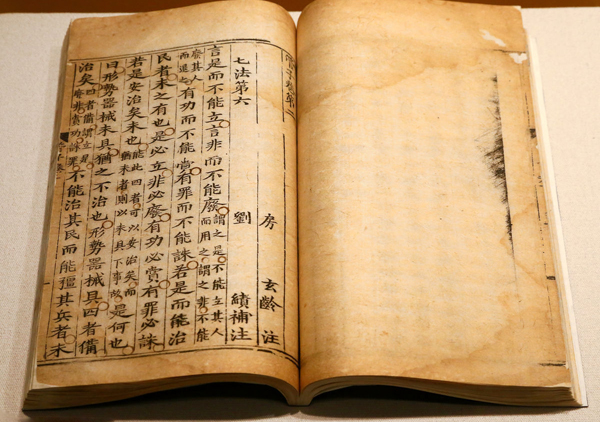 管子卷第
房玄齡注
七法第六 劉績補注
言是而不能立言非而不能廢謂之是不能立其人而用之謂之非不能
廢其人而退之有功而不能賞有罪而不能誅若是而能治
民者未之有也是必立非必廢有功必賞有罪必誅
若是安治矣未也能此四者可以安治矣而猶未者則以未具下事故是何也
曰形勢器械未具猶之不治也形勢器械具四者備
治矣四者備謂立是廢非賞功誅罪不能治其民而能彊其兵者未